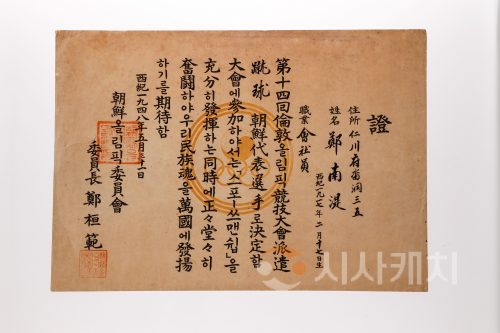 證
住所 仁川府畓洞三五
姓名 鄭南湜
西紀一九一七年二月十七日生
職業 會社員
第十四回倫敦올림픽競技大會派遣
蹴球 朝鮮代表選手로決定함
大會에參加하야서는「스포-쓰맨쉽」을
充分히發揮하는同時에正々堂々히
奮闘하야우리民族魂을萬國에發揚
하기를期待함
西紀一九四八年五月三十一日
朝鮮올림픽委員會
委員長 鄭桓範
시사캐치